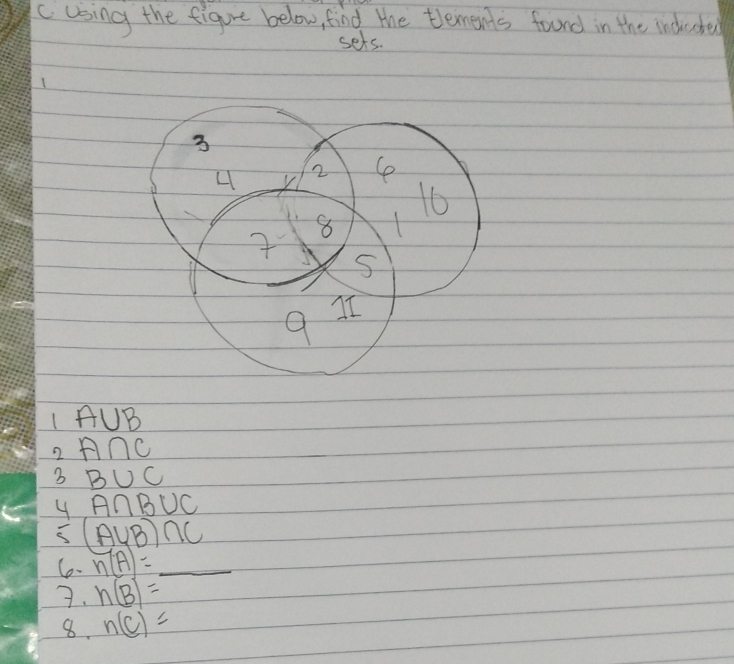 C. Using the figure below, find the Elements found in the indicated
sets.
1
3
2
6
4
10
8
1
7
5
11
9
1 A∪B
2 A∩C
3 B∪C
4 A∩B∪C
5 (A∪B)∩C
6. n(A)= ____
7. n(B)=
8. n(C)=